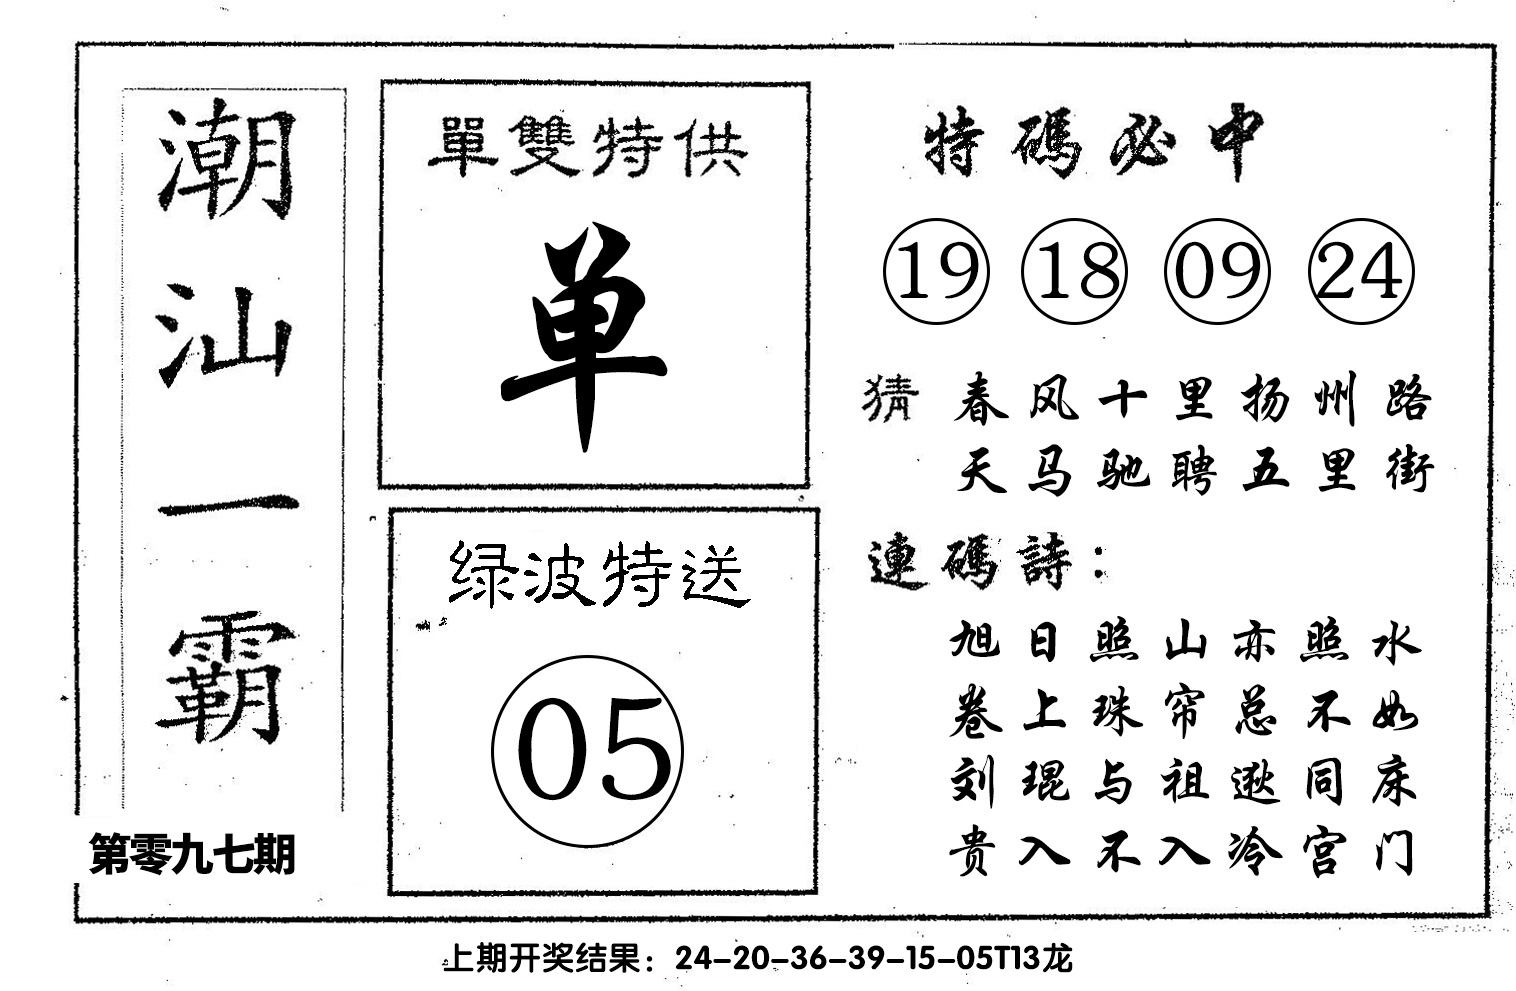 潮汕一霸
第零九七期
單雙特供
单
绿波特送
05
特碼必中
19 18 09 24
猜 春风十里扬州路
天马驰聘五里街
連碼詩：
旭日照山亦照水
卷上珠帘总不如
刘琨与祖逖同床
贵人不入冷宫门
上期开奖结果：24-20-36-39-15-05T13龙